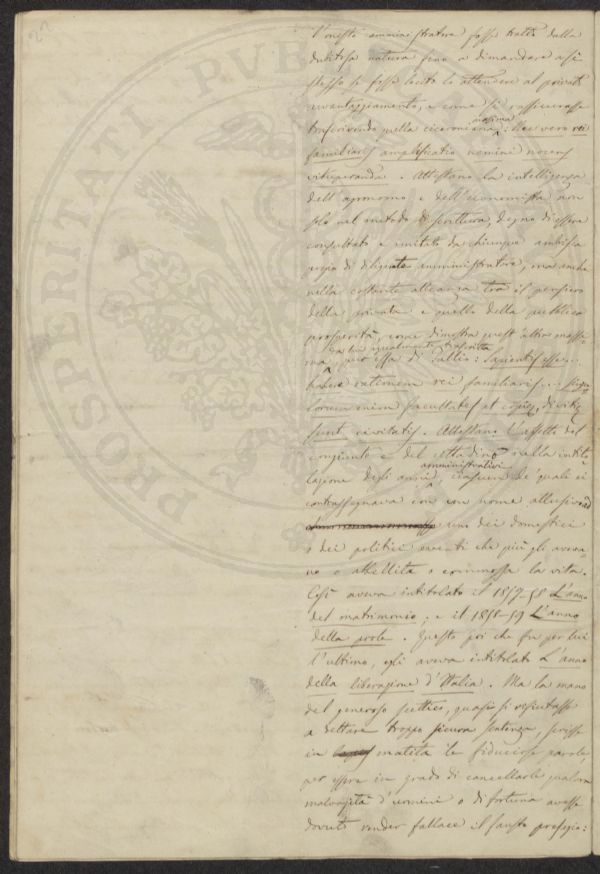 22
PROSPERITATI PUBL
l'onesto amministratore fosse tratto dalla
dubitosa natura fino a dimandare a sè
stesso se fosse lecito lo attendere al privato
avvantaggiamento, e come si rassicurasse
trascrivendo quella ciceroniana massima: Nec vero rei
familiaris amplificatio nemini nocens
vituperanda. Attestano la intelligenza
dell'agronomo e dell'economista non
solo nel metodo di scrittura, degno di essere
consultato e imitato da chiunque ambisca
pregio di diligente amministratore, ma anche
nella costante alleanza tra il pensiero
della privata e quello della pubblica
prosperità, come dimostra quest'altra massi-
da lui egualmente trascritta
ma, pur essa di Tullio: Sapientis esse...
habere rationem rei familiaris... singu
lorum enim facultates et copiæ, divitiæ
sunt civitatis. Attestano l'affetto del
congiunto e del cittadino nella intito
lazione degli anni amministrativi, ciascun de' quali ei
contrassegnava con un nome allusivo ad
uno dei domestici
o dei politici eventi che più gli aveva
no o abbellita o commossa la vita.
Così aveva intitolato il 1857-58 L'anno
del matrimonio; e il 1858-59 L'anno
della prole. Questo poi che fu per lui
l'ultimo, egli aveva intitolato L'anno
della liberazione d'Italia. Ma la mano
del generoso scettico, quasi si rifiutasse
a dettare troppo sicura sentenza, scrisse
in matita le fiduciose parole,
per essere in grado di cancellarle qualora
malvagità d'uomini o di fortuna avesse
dovuto render fallace il fausto presagio: